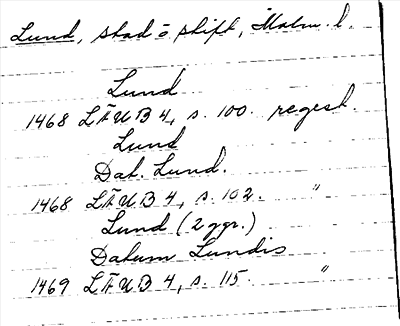 Lund, stad o stift, Malm. l.
Lund
1468 LÄUB 4, s. 100. regest.
Lund
Dat. Lund.
1468 LÄUB 4, s. 102. "
Lund (2 ggr.)
Datum Lundis
1469 LÄUB 4, s. 115. "